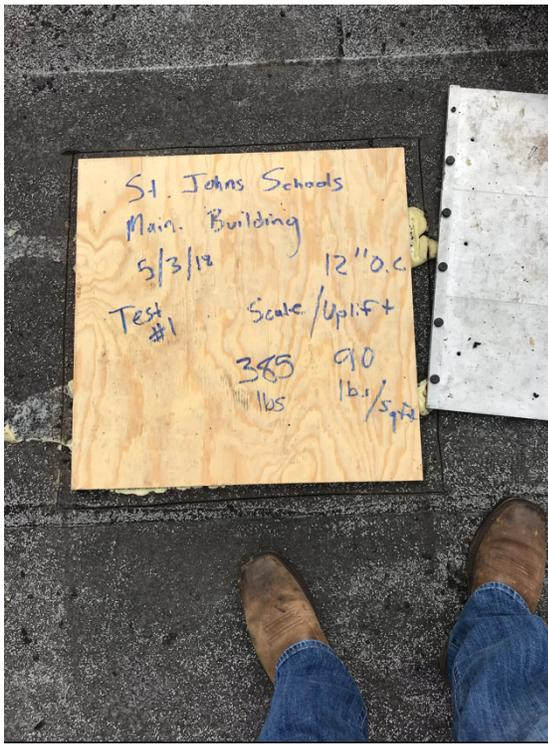 St Johns Schools
Main Building
5/3/18 12" O.C
Test Scale/Uplift
#1
385 90
lbs lbs/sqft